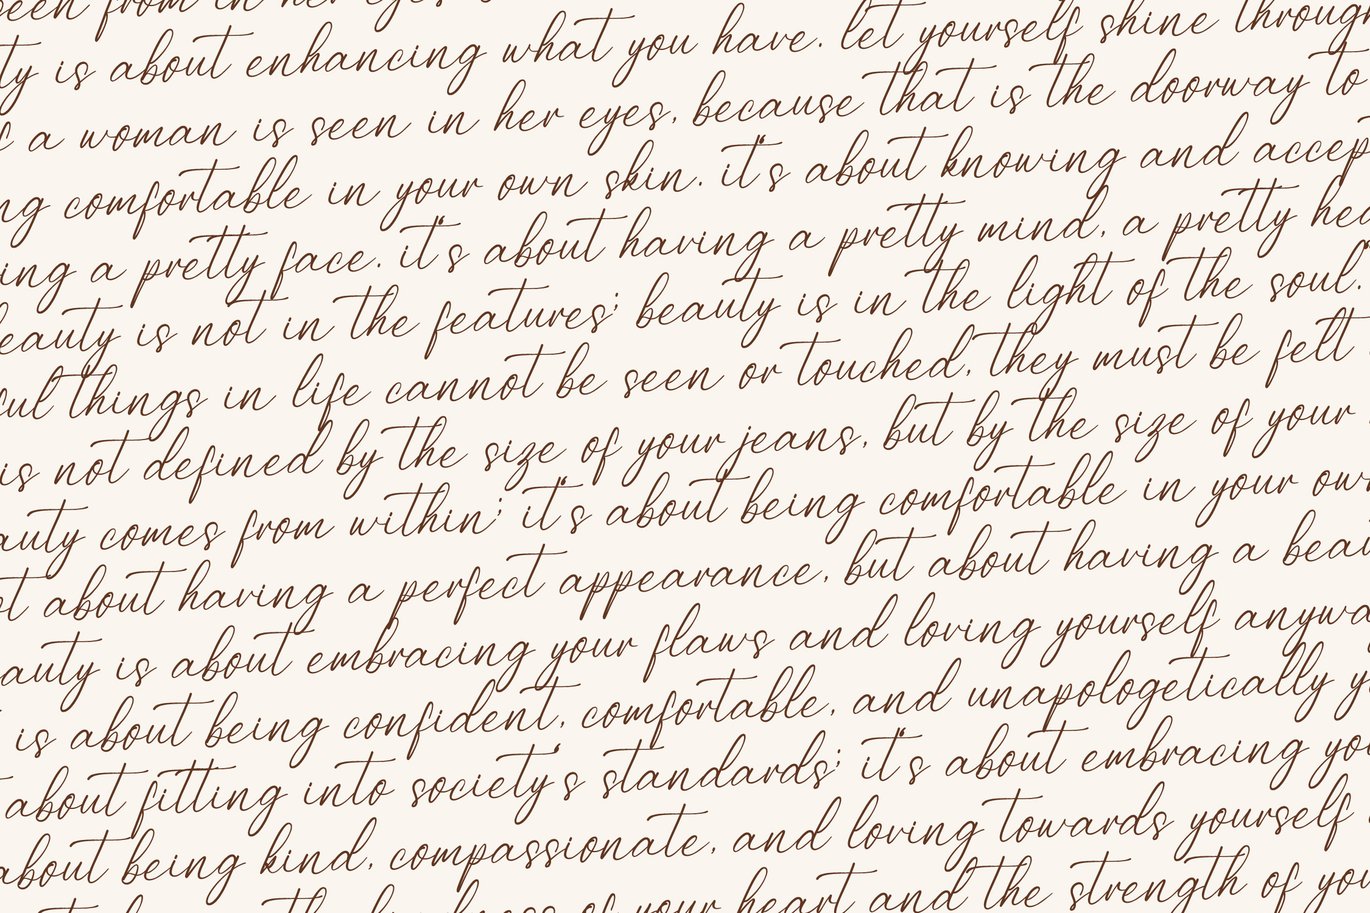 been from in her eyes
ty is about enhancing what you have. let yourself shine through
a woman is seen in her eyes, because that is the doorway to
ng comfortable in your own skin. it's about knowing and accep
ing a pretty face. it's about having a pretty mind, a pretty hea
beauty is not in the features; beauty is in the light of the soul.
ful things in life cannot be seen or touched, they must be felt
is not defined by the size of your jeans, but by the size of your
auty comes from within; it's about being comfortable in your own
ot about having a perfect appearance, but about having a beau
auty is about embracing your flaws and loving yourself anywa
is about being confident, comfortable, and unapologetically y
about fitting into society's standards; it's about embracing you
about being kind, compassionate, and loving towards yourself
your heart and the strength of you